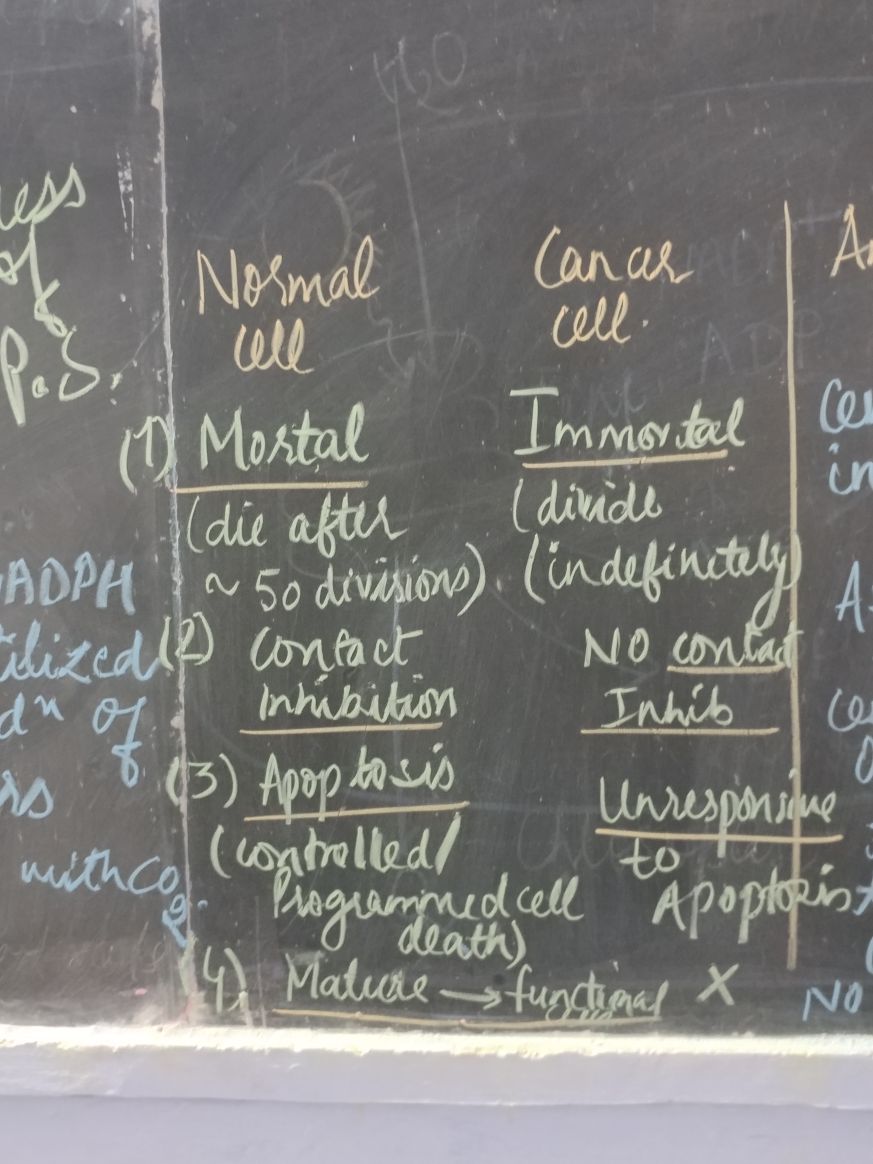 ess
of
&
P.S.
ADPH
tilized
dn of
rs
with CO2.
Normal
cell
Cancer
cell.
(1) Mortal
Immortal
(die after
~ 50 divisions)
(divide
(indefinitely)
(2) Contact
Inhibition
NO contact
Inhib
(3) Apoptosis
(controlled/
Programmed cell
death)
Unresponsive
to
Apoptosis
(4), Mature → functional X
in
NO
H2O
ADP